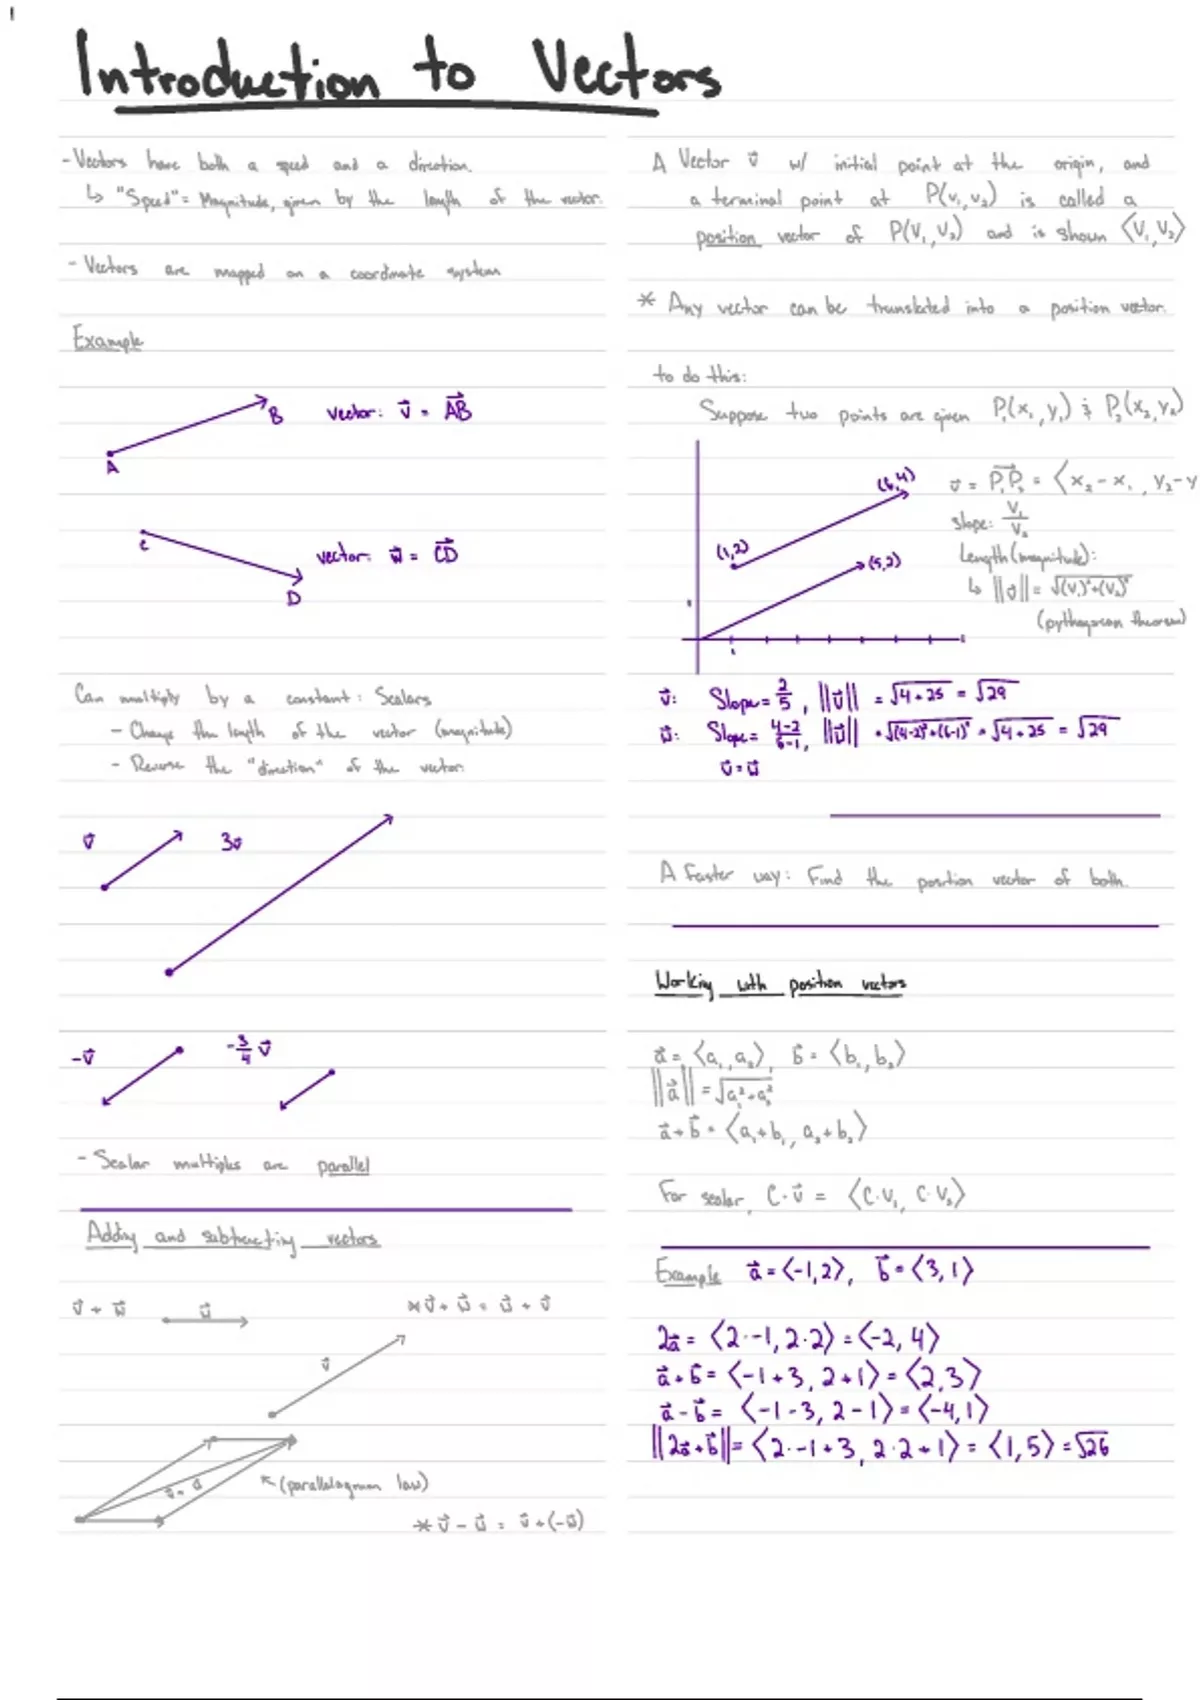 1
Introduction to Vectors
- Vectors have both a speed and a direction.
↳ "Speed" = Magnitude, given by the length of the vector.
- Vectors are mapped on a coordinate system
Example
A
B
vector: v⃗ = AB⃗
C
D
vector: w⃗ = CD⃗
Can multiply by a constant: Scalars
- Change the length of the vector (magnitude)
- Reverse the "direction" of the vector.
v⃗
3v⃗
-v⃗
-3/4 v⃗
- Scalar multiples are parallel
Adding and subtracting vectors
v⃗ + w⃗
u⃗
*v⃗ + u⃗ = u⃗ + v⃗
v⃗
(parallelogram law)
*v⃗ - u⃗ = v⃗ + (-u⃗)
A Vector v⃗ w/ initial point at the origin, and
a terminal point at P(v₁, v₂) is called a
position vector of P(v₁, v₂) and is shown ⟨v₁, v₂⟩
* Any vector can be translated into a position vector.
to do this:
Suppose two points are given P₁(x₁, y₁) & P₂(x₂, y₂)
(6,4)
(1,2)
(5,2)
1
1
v⃗ = P₁P₂⃗ = ⟨x₂ - x₁, y₂ - y
slope: v₁/v₂
Length (magnitude):
↳ ||v⃗|| = √(v₁)² + (v₂)²
(pythagorean theorem)
v⃗: Slope = 2/5, ||v⃗|| = √4+25 = √29
u⃗: Slope = 4-2/6-1, ||u⃗|| = √(4-2)²+(6-1)² = √4+25 = √29
v⃗ = u⃗
A faster way: Find the position vector of both.
Working with position vectors
a⃗ = ⟨a₁, a₂⟩, b⃗ = ⟨b₁, b₂⟩
||a⃗|| = √a₁² + a₂²
a⃗ + b⃗ = ⟨a₁ + b₁, a₂ + b₂⟩
For scalar, C · v⃗ = ⟨C·v₁, C·v₂⟩
Example a⃗ = ⟨-1, 2⟩, b⃗ = ⟨3, 1⟩
2a⃗ = ⟨2·-1, 2·2⟩ = ⟨-2, 4⟩
a⃗ + b⃗ = ⟨-1+3, 2+1⟩ = ⟨2, 3⟩
a⃗ - b⃗ = ⟨-1-3, 2-1⟩ = ⟨-4, 1⟩
||2a⃗ + b⃗|| = ⟨2·-1+3, 2·2+1⟩ = ⟨1, 5⟩ = √26